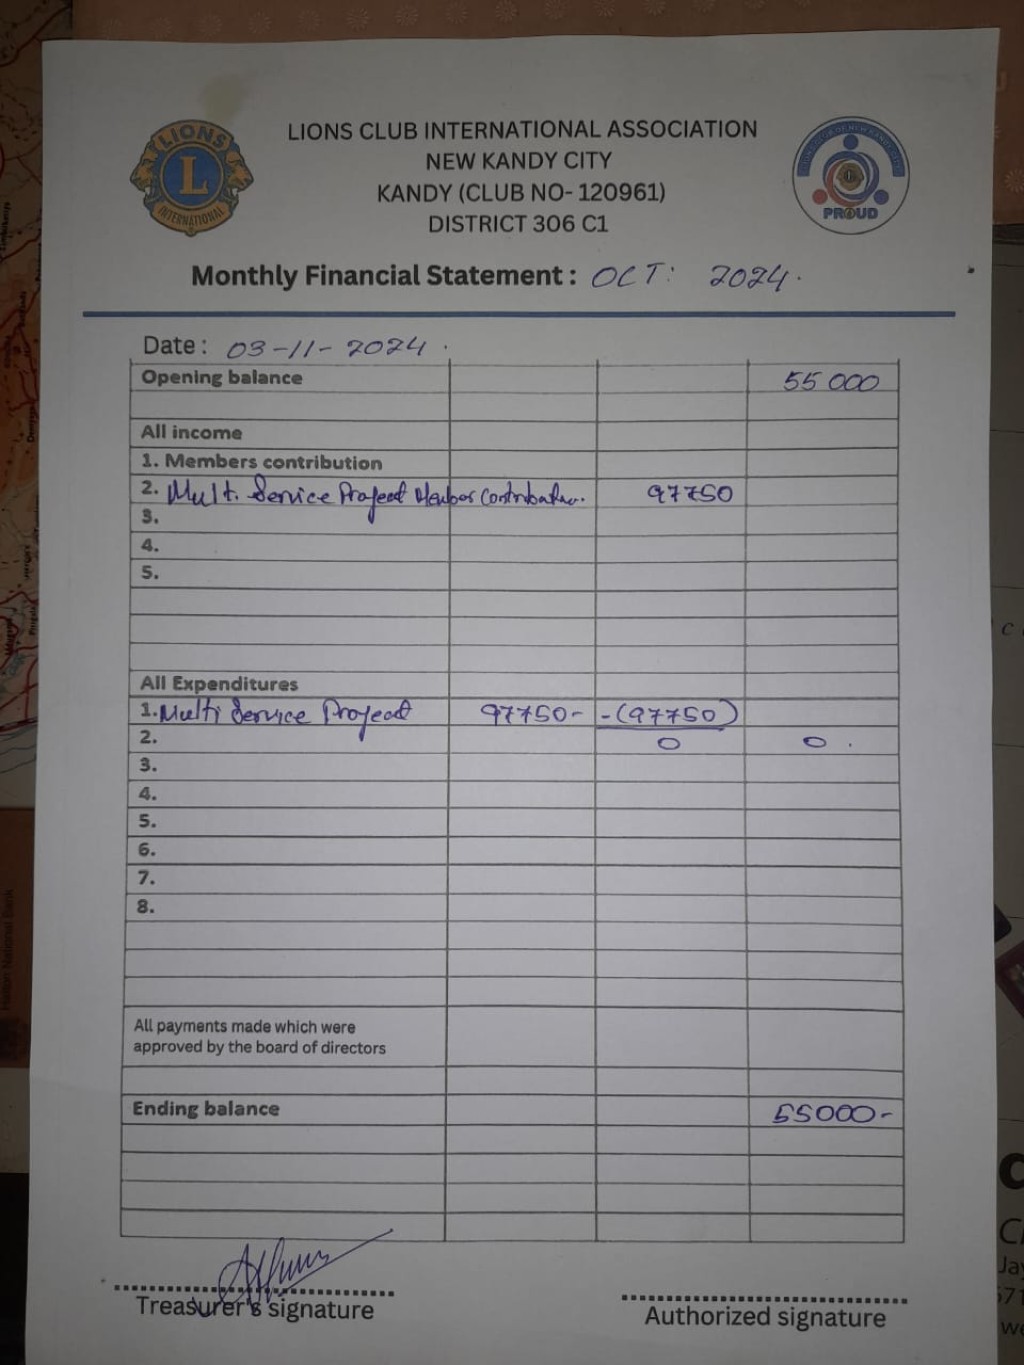 LIONS
L
INTERNATIONAL
LIONS CLUB INTERNATIONAL ASSOCIATION
NEW KANDY CITY
KANDY (CLUB NO- 120961)
DISTRICT 306 C1
PROUD
Monthly Financial Statement : OCT: 2024.
Date : 03-11-2024.
Opening balance 55 000
All income
1. Members contribution
2. Multi Service Project Member Contribution. 97750
3.
4.
5.
All Expenditures
1. Multi Service Project 97750- -(97750)
2. 0 0.
3.
4.
5.
6.
7.
8.
All payments made which were
approved by the board of directors
Ending balance 55000-
Treasurer's signature
Authorized signature